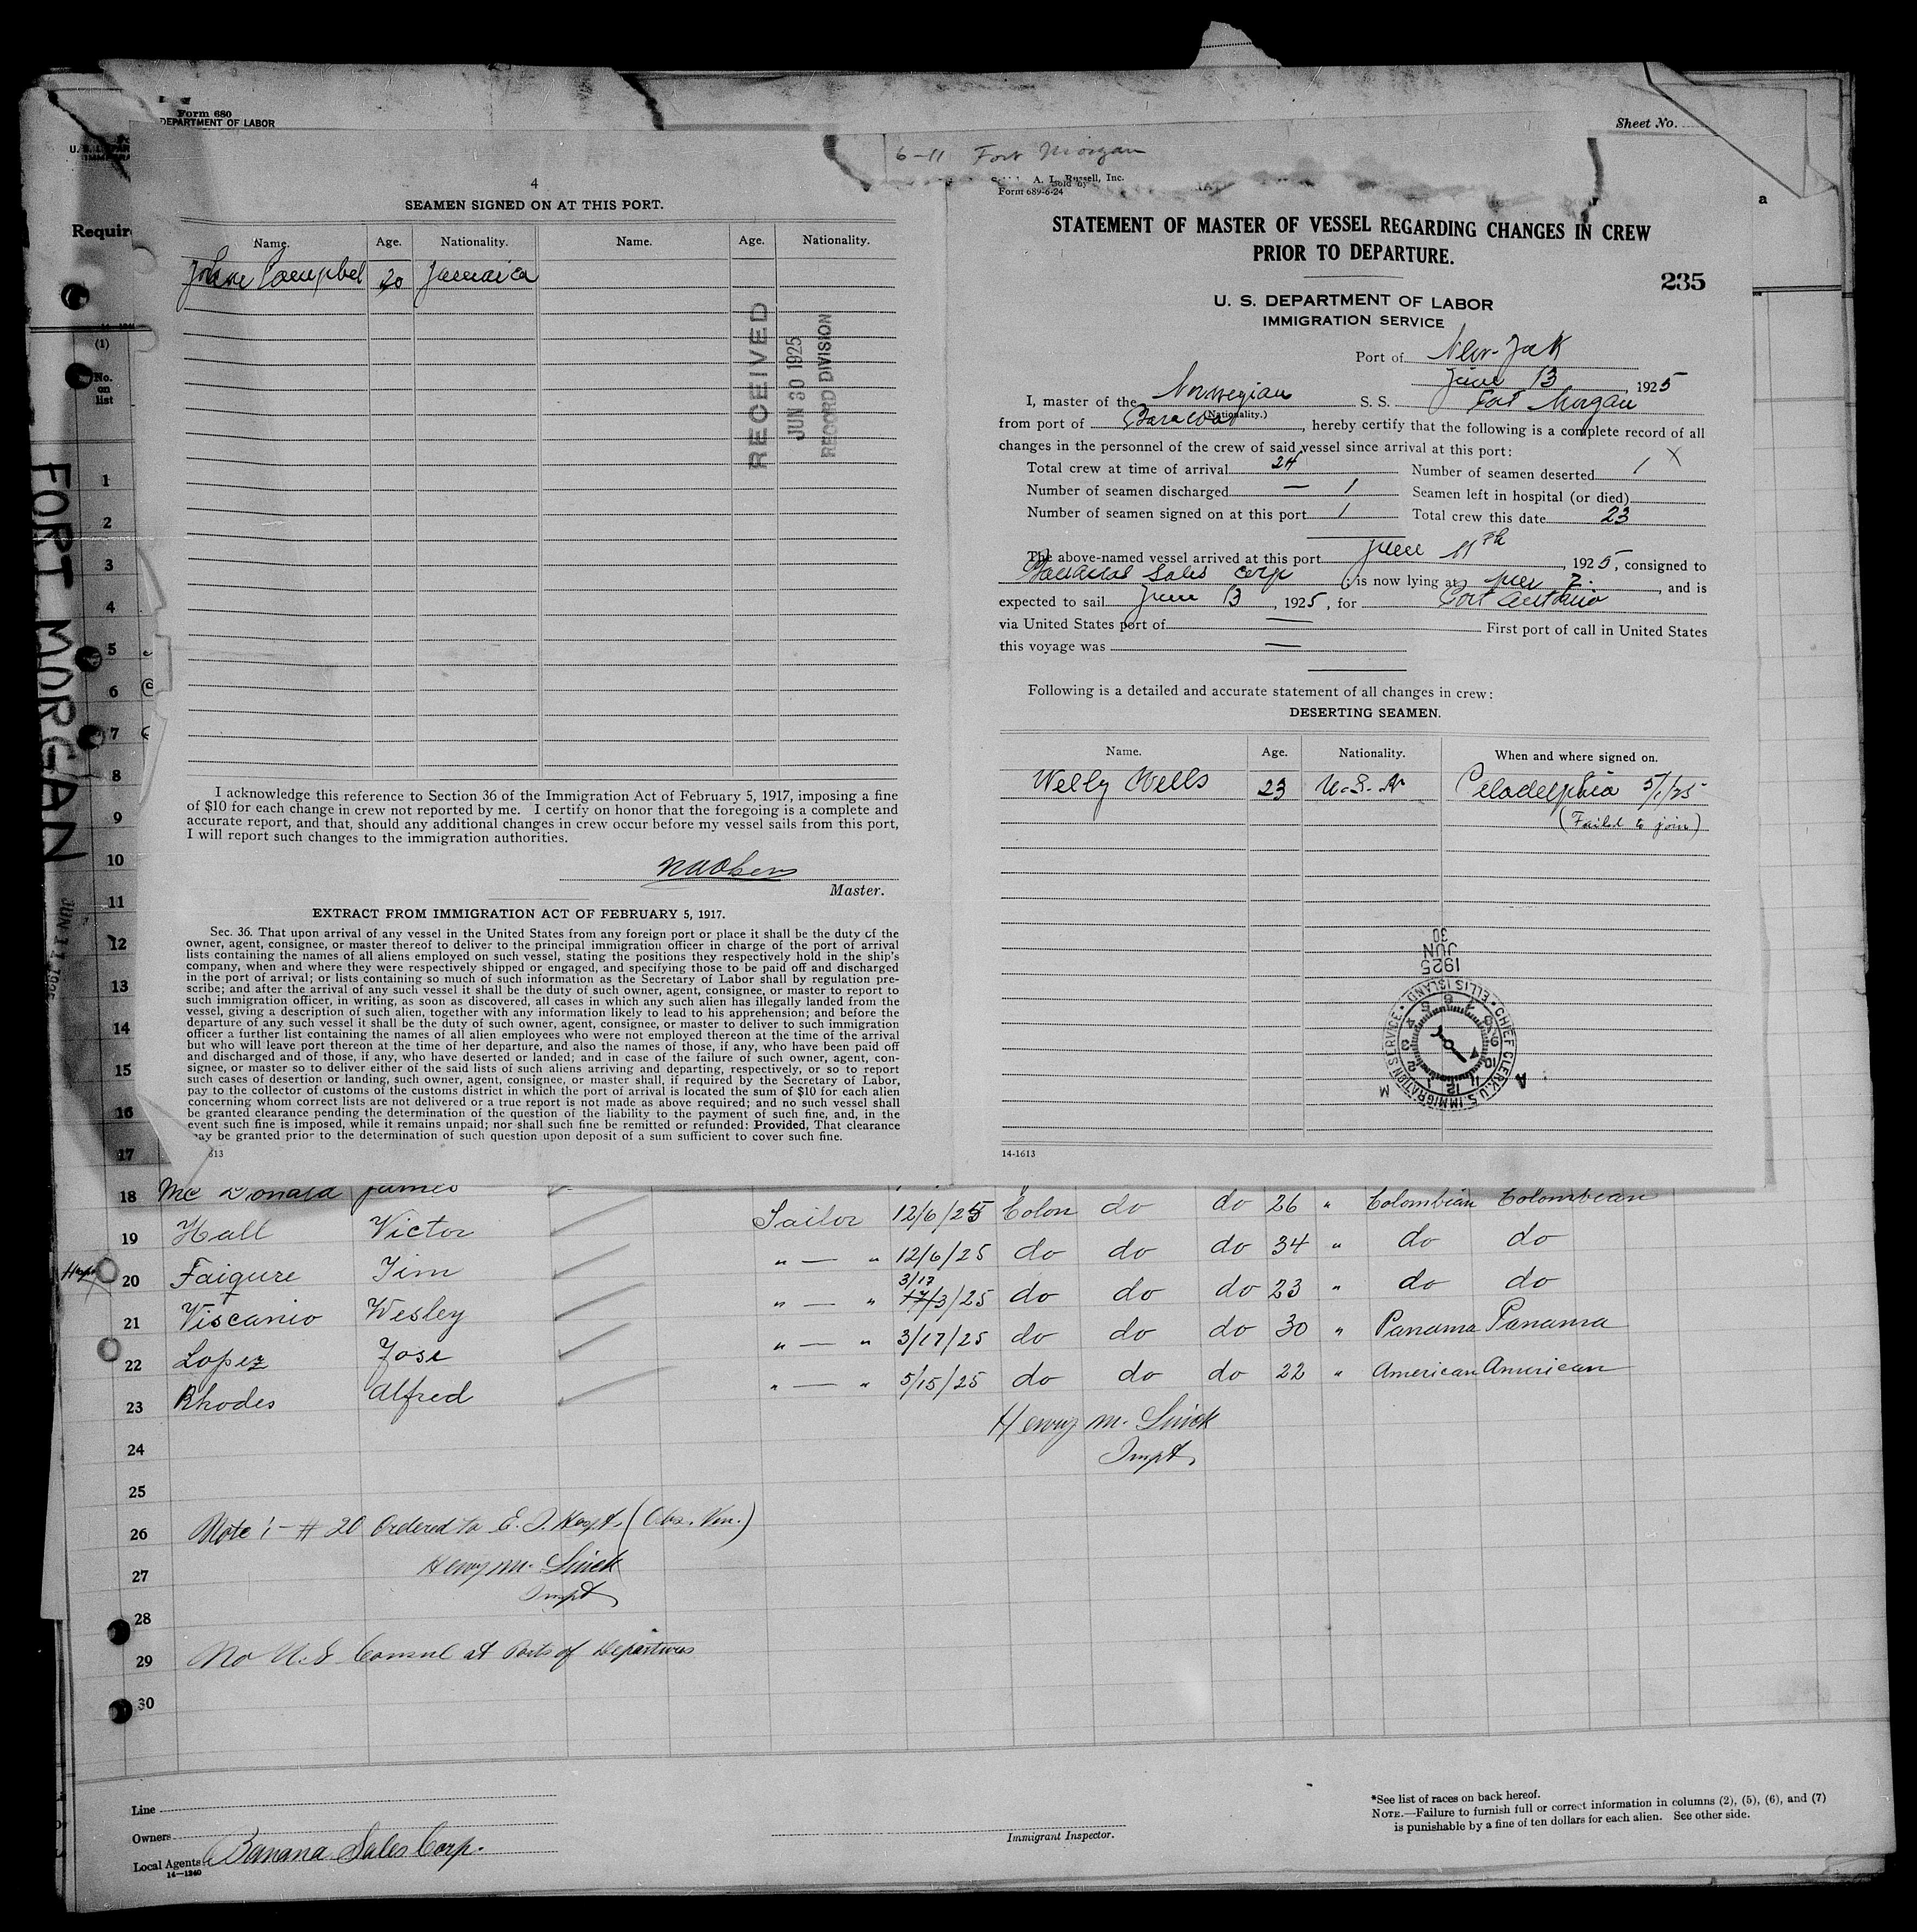 Form 680
DEPARTMENT OF LABOR
Sheet No.
6-11 Fort Morgan
4
SEAMEN SIGNED ON AT THIS PORT.
Name. Age. Nationality. Name. Age. Nationality.
Campbel 20 Jamaica
RECEIVED
JUN 30 1925
RECORD DIVISION
I acknowledge this reference to Section 36 of the Immigration Act of February 5, 1917, imposing a fine
of $10 for each change in crew not reported by me. I certify on honor that the foregoing is a complete and
accurate report, and that, should any additional changes in crew occur before my vessel sails from this port,
I will report such changes to the immigration authorities.
Master.
EXTRACT FROM IMMIGRATION ACT OF FEBRUARY 5, 1917.
Sec. 36. That upon arrival of any vessel in the United States from any foreign port or place it shall be the duty of the
owner, agent, consignee, or master thereof to deliver to the principal immigration officer in charge of the port of arrival
lists containing the names of all aliens employed on such vessel, stating the positions they respectively hold in the ship's
company, when and where they were respectively shipped or engaged, and specifying those to be paid off and discharged
in the port of arrival; or lists containing so much of such information as the Secretary of Labor shall by regulation pre-
scribe; and after the arrival of any such vessel it shall be the duty of such owner, agent, consignee, or master to report to
such immigration officer, in writing, as soon as discovered, all cases in which any such alien has illegally landed from the
vessel, giving a description of such alien, together with any information likely to lead to his apprehension; and before the
departure of any such vessel it shall be the duty of such owner, agent, consignee, or master to deliver to such immigration
officer a further list containing the names of all alien employees who were not employed thereon at the time of the arrival
but who will leave port thereon at the time of her departure, and also the names of those, if any, who have been paid off
and discharged and of those, if any, who have deserted or landed; and in case of the failure of such owner, agent, con-
signee, or master so to deliver either of the said lists of such aliens arriving and departing, respectively, or so to report
such cases of desertion or landing, such owner, agent, consignee, or master shall, if required by the Secretary of Labor,
pay to the collector of customs of the customs district in which the port of arrival is located the sum of $10 for each alien
concerning whom correct lists are not delivered or a true report is not made as above required; and no such vessel shall
be granted clearance pending the determination of the question of the liability to the payment of such fine, and, in the
event such fine is imposed, while it remains unpaid; nor shall such fine be remitted or refunded: Provided, That clearance
may be granted prior to the determination of such question upon deposit of a sum sufficient to cover such fine.
613
A. L. Russell, Inc.
Form 689-6-24
STATEMENT OF MASTER OF VESSEL REGARDING CHANGES IN CREW
PRIOR TO DEPARTURE.
235
U. S. DEPARTMENT OF LABOR
IMMIGRATION SERVICE
Port of New-York
June 13, 1925
I, master of the Norwegian S. S. Fort Morgan
(Nationality.)
from port of Baracoa, hereby certify that the following is a complete record of all
changes in the personnel of the crew of said vessel since arrival at this port:
Total crew at time of arrival 24 Number of seamen deserted 1 X
Number of seamen discharged — 1 Seamen left in hospital (or died)
Number of seamen signed on at this port 1 Total crew this date 23
The above-named vessel arrived at this port June 11th, 1925, consigned to
Sales Corp, is now lying at pier 7., and is
expected to sail June 13, 1925, for Port Antonio
via United States port of — First port of call in United States
this voyage was —
Following is a detailed and accurate statement of all changes in crew:
DESERTING SEAMEN.
Name. Age. Nationality. When and where signed on.
Welly Wells 23 U.S.A Peladelphia 5/1/25
(Failed to join)
1925
JUN
30
CHIEF CLERK, U.S. IMMIGRATION SERVICE • ELLIS ISLAND •
A M
14-1613
Require
(1)
No.
on
list
FORT MORGAN
JUN 11 1925
1
2
3
4
5
6
7
8
9
10
11
12
13
14
15
16
17
18 Mc Donald James
19 Hall Victor Sailor 12/6/25 Colon do do 26 " Colombian Colombian
20 Faigure Jim " — " 12/6/25 do do do 34 " do do
3/17
21 Viscanio Wesley " — " 17/3/25 do do do 23 " do do
22 Lopez Jose " — " 3/17/25 do do do 30 " Panama Panama
23 Rhodes Alfred " — " 5/15/25 do do do 22 " American American
24 Henry M.
25 Inspt.
26 Note:- # 20 Ordered to E. I. Hospt. (Obs. Ven.)
27 Henry M.
28 Inspt
29 No U.S Consul at Ports of Departures
30
Line
Owners
Local Agents Banana Sales Corp.
14-1240
Immigrant Inspector.
*See list of races on back hereof.
NOTE.—Failure to furnish full or correct information in columns (2), (5), (6), and (7)
is punishable by a fine of ten dollars for each alien. See other side.